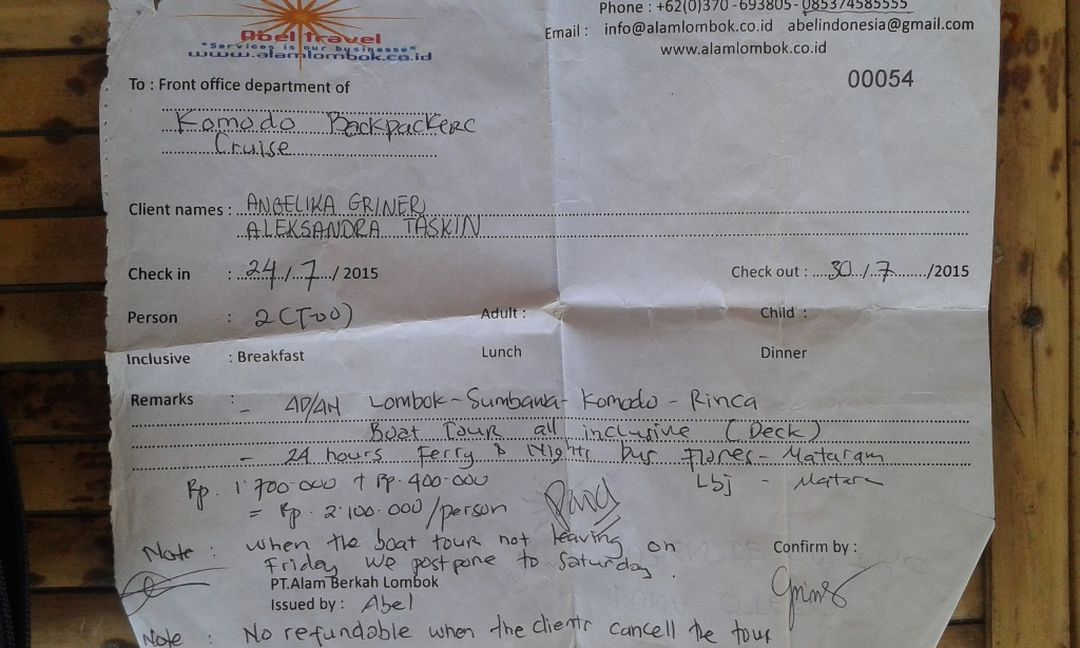 Abel travel
"Services is our businesse"
www.alamlombok.co.id
Phone : +62(0)370 - 693805 - 085374585555
Email : info@alamlombok.co.id abelindonesia@gmail.com
www.alamlombok.co.id
00054
To : Front office department of
Komodo Backpackerc
Cruise
Client names : ANGELIKA GRINER
ALEKSANDRA TASKIN
Check in : 24/7/2015 Check out : 30/7/2015
Person : 2 (Two) Adult : Child :
Inclusive : Breakfast Lunch Dinner
Remarks : - 4D/4N Lombok - Sumbawa - Komodo - Rinca
Boat Tour all inclusive (Deck)
- 24 hours Ferry & Nightr bus Flores - Mataram
Rp. 1.700.000 + Rp. 400.000 Lbj - Matara
= Rp. 2.100.000/person Paid
Note : when the boat tour not leaving on
Friday we postpone to Saturday.
Confirm by :
PT.Alam Berkah Lombok
Issued by : Abel
Note : No refundable when the clientr cancell the tour